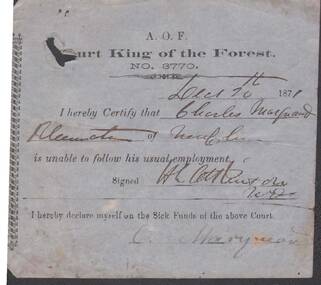 A. O. F.
Court King of the Forest.
NO. 3770.
Decr 20th 1871
I hereby Certify that Charles Marquand
of
is unable to follow his usual employment
Signed
I hereby declare myself on the Sick Funds of the above Court.
C. Marquand